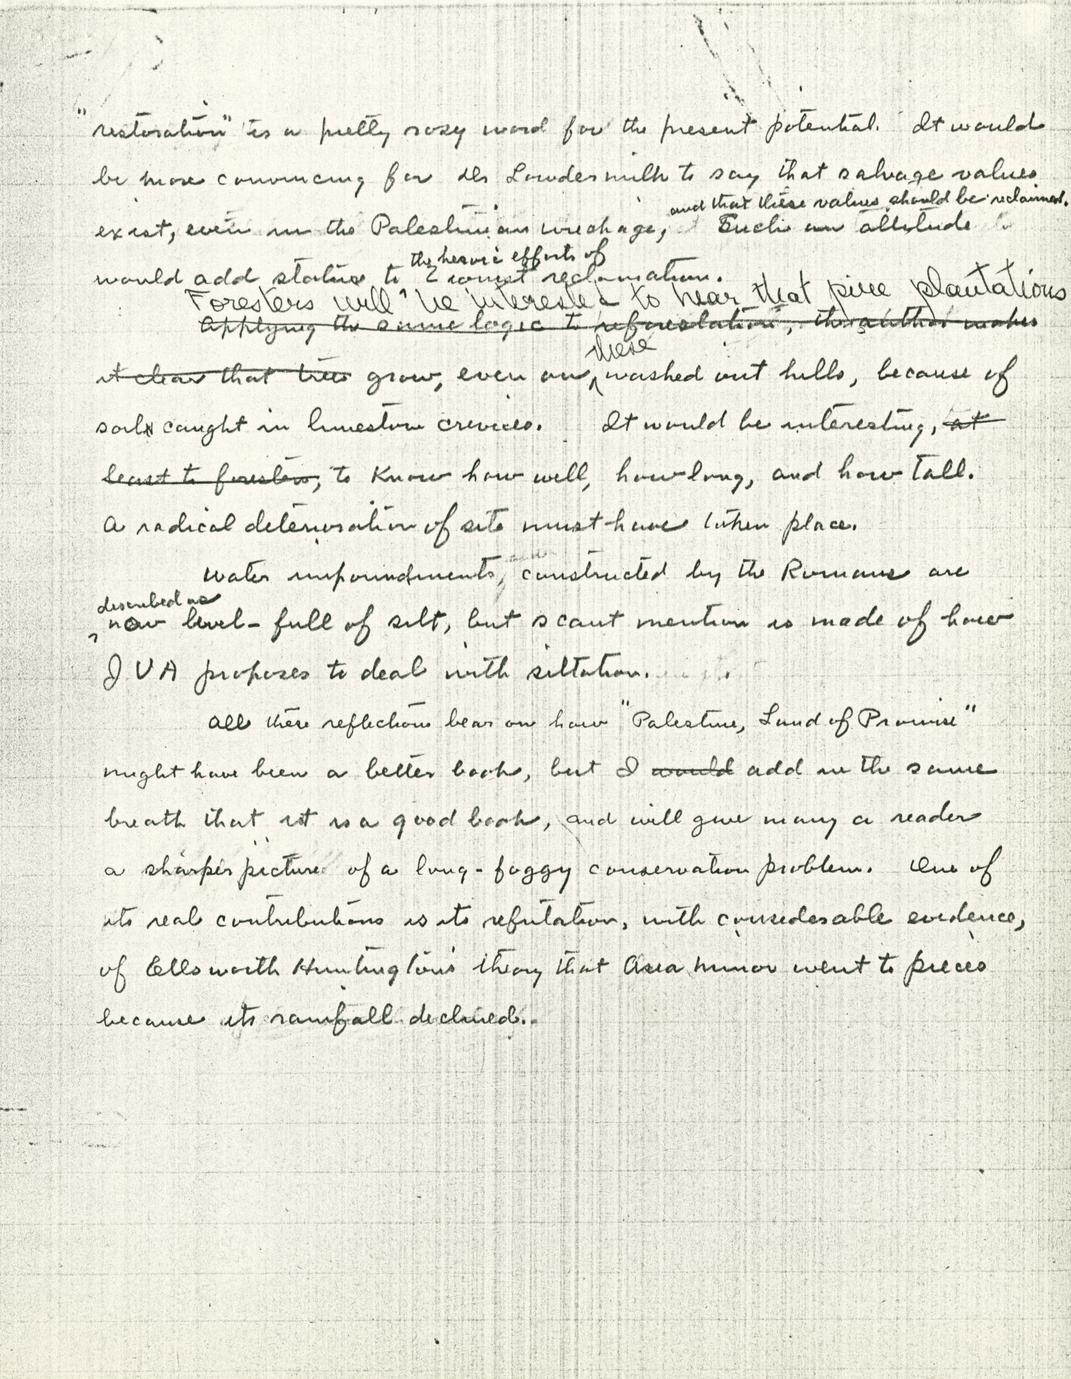 "restoration" is a pretty rosy word for the present potential. It would
be more convincing for Dr Lowdermilk to say that salvage values
and that these values should be reclaimed.
exist, even in the Palestinian wreckage, Such an attitude
the heroic efforts of
would add status to Zionist reclamation.
Foresters will be interested to hear that pine plantations
Applying the same logic to reforestation, the author makes
these
it clear that trees grow, even on washed out hills, because of
soil caught in limestone crevices. It would be interesting, at
least to foresters, to know how well, how long, and how tall.
A radical deterioration of site must have taken place.
Water impoundments, constructed by the Romans are
described as
now level-full of silt, but scant mention is made of how
JVA proposes to deal with siltation.
All these reflections bear on how "Palestine, Land of Promise"
might have been a better book, but I would add in the same
breath that it is a good book, and will give many a reader
a sharper picture of a long-foggy conservation problem. One of
its real contributions is its refutation, with considerable evidence,
of Ellsworth Huntington's theory that Asia Minor went to pieces
because its rainfall declined.